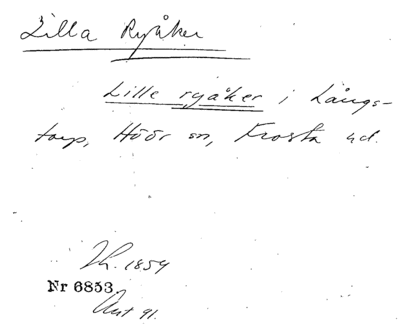 Lilla Ryåker
Lille ryåker i Långs-
torp, Höör sn, Frosta hd.
1854
Nr 6853
91.